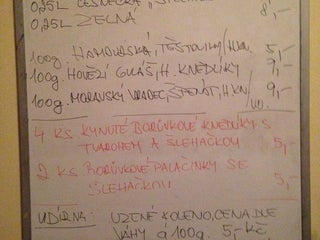 0,25L ČESNEČKA
0,25L ZELNÁ 8,-
100g. HAMBURSKÁ, TĚSTOVINY/H.KN. 5,-
100g. HOVĚZÍ GULÁŠ, H. KNEDLÍKY 9,-
100g. MORAVSKÝ VRABEC, ŠPENÁT, H.KN/ 9,-
4 KS KYNUTÉ BORŮVKOVÉ KNEDLÍKY S
TVAROHEM A ŠLEHAČKOU 5,-
2 KS BORŮVKOVÉ PALAČINKY SE
ŠLEHAČKOU 5,-
UDÍRNA: UZENÉ KOLENO, CENA DLE
VÁHY á 100g. 5,- Kč